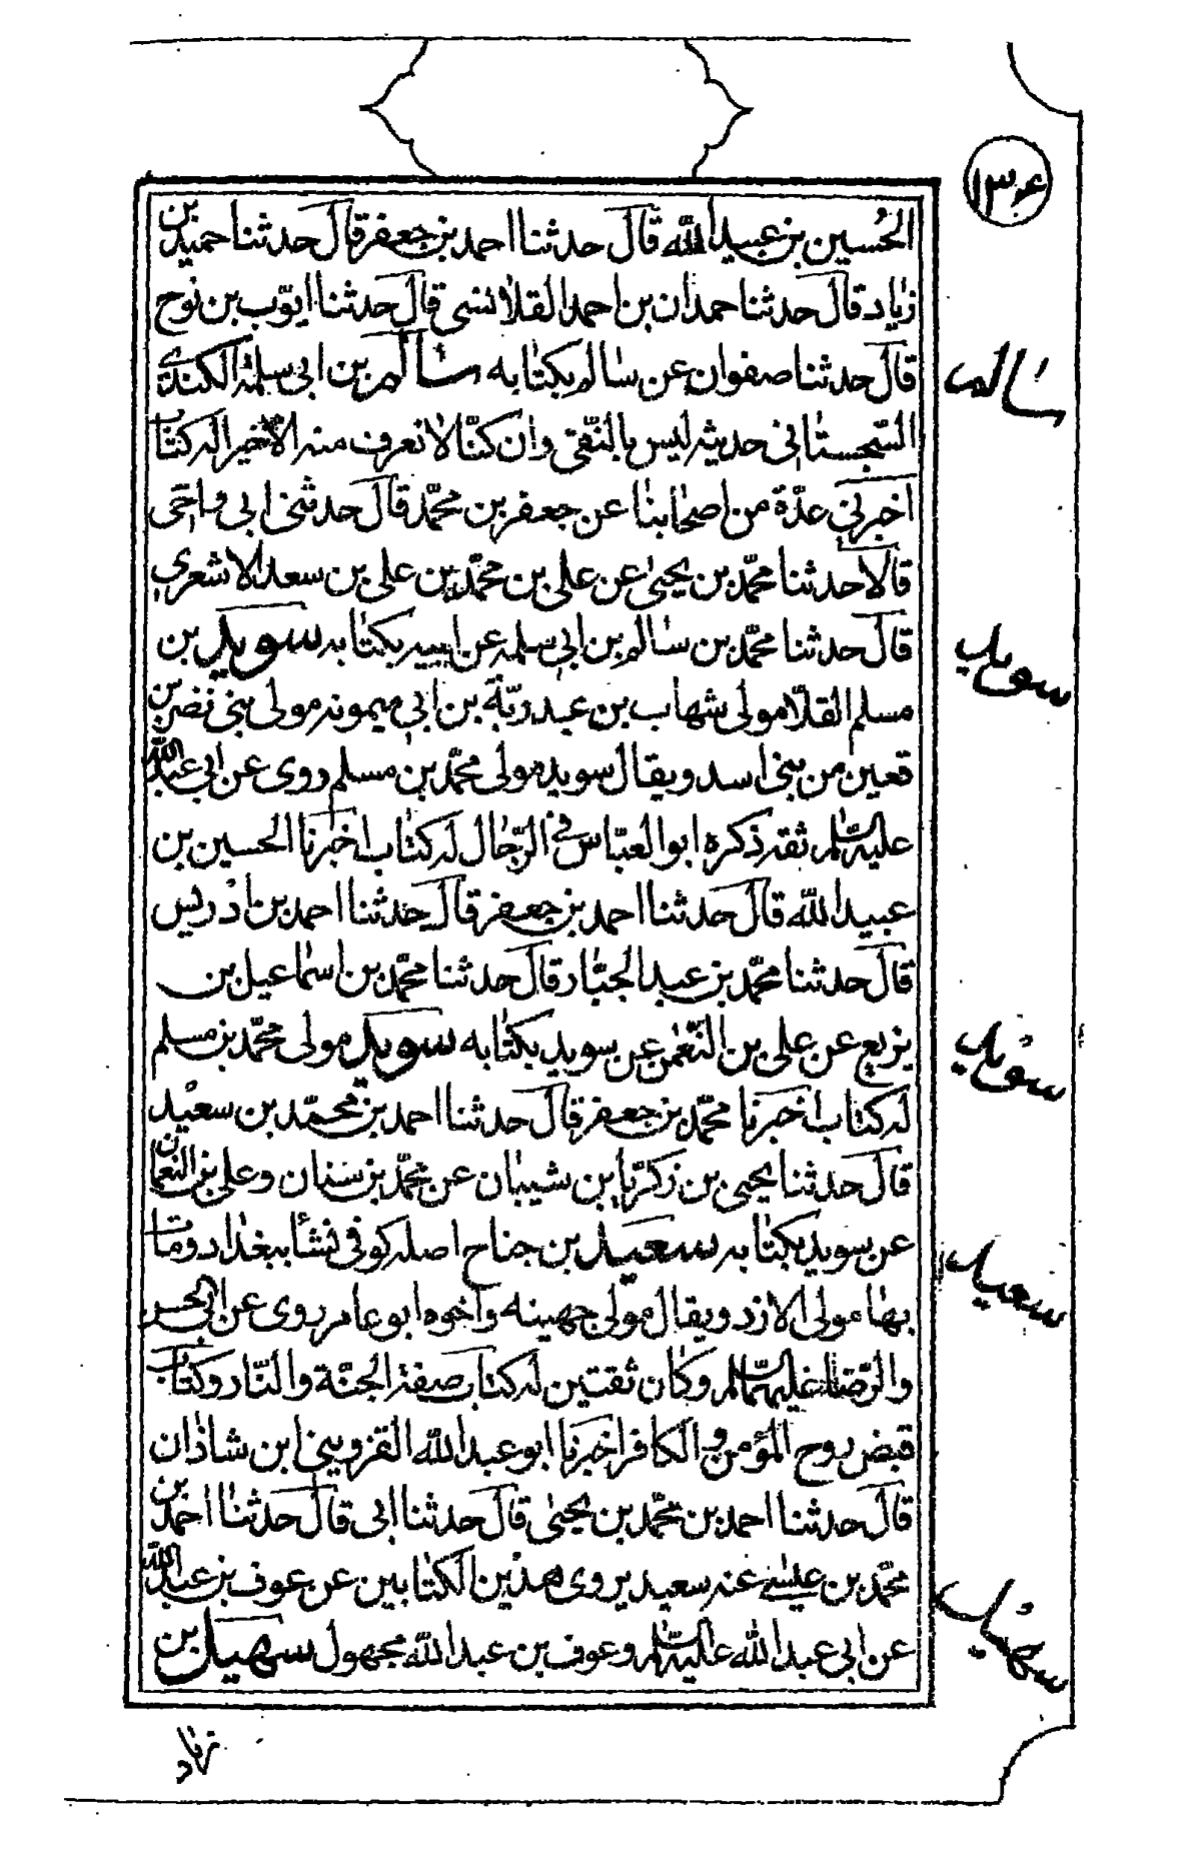 ١٣٤
الحُسين بن عبيد الله قال حدثنا احمد بن جعفر قال حدثنا حميد بن
زياد قال حدثنا حمدان بن احمد القلانسى قال حدثنا ايّوب بن نوح
قال حدثنا صفوان عن سالم بكتابه سالم بن ابى سلمة الكندى
سالم
السّجستانى حديثه ليس بالنّقى وان كنّا لا نعرف منه الّا خيرا له كتاب
اخبرنى عدّة من اصحابنا عن جعفر بن محمّد قال حدثنى ابى واخى
قالا حدثنا محمّد بن يحيى عن على بن محمّد بن على بن سعد الاشعرى
قال حدثنا محمّد بن سالم بن ابى سلمه عن ابيه بكتابه سويد بن
سويد
مسلم القلّا مولى شهاب بن عبد ربّة بن ابى ميمونه مولى بنى نضر بن
قعين من بنى اسد ويقال سويد مولى محمّد بن مسلم روى عن ابى عبد الله
عليه السّلم ثقه ذكره ابو العبّاس فى الرّجال له كتاب اخبرنا الحسين بن
عبيد الله قال حدثنا احمد بن جعفر قال حدثنا احمد بن ادريس
قال حدثنا محمّد بن عبد الجبّار قال حدثنا محمّد بن اسماعيل بن
بزيع عن على بن النّعمن عن سويد بكتابه سويد مولى محمّد بن مسلم
سويد
له كتاب اخبرنا محمّد بن جعفر قال حدثنا احمد بن محمّد بن سعيد
قال حدثنا يحيى بن زكريّا بن شيبان عن محمّد بن سنان وعلى بن النعمان
عن سويد بكتابه سعيد بن جناح اصله كوفى نشأ ببغداد ومات
سعيد
بها مولى الازد ويقال مولى جهينه واخوه ابو عامر روى عن ابى الحسن
والرّضا عليهما السّلم وكان ثقتين له كتاب صفة الجنّة والنّار وكتاب
قبض روح المؤمن والكافر اخبرنا ابو عبد الله القزوينى ابن شاذان
قال حدثنا احمد بن محمّد بن يحيى قال حدثنا ابى قال حدثنا احمد بن
محمّد بن عيسى عنه سعيد يروى هذين الكتابين عن عوف بن عبد الله
عن ابى عبد الله عليه السّلم وعوف بن عبد الله مجهول سهيل بن
سهيل
زياد